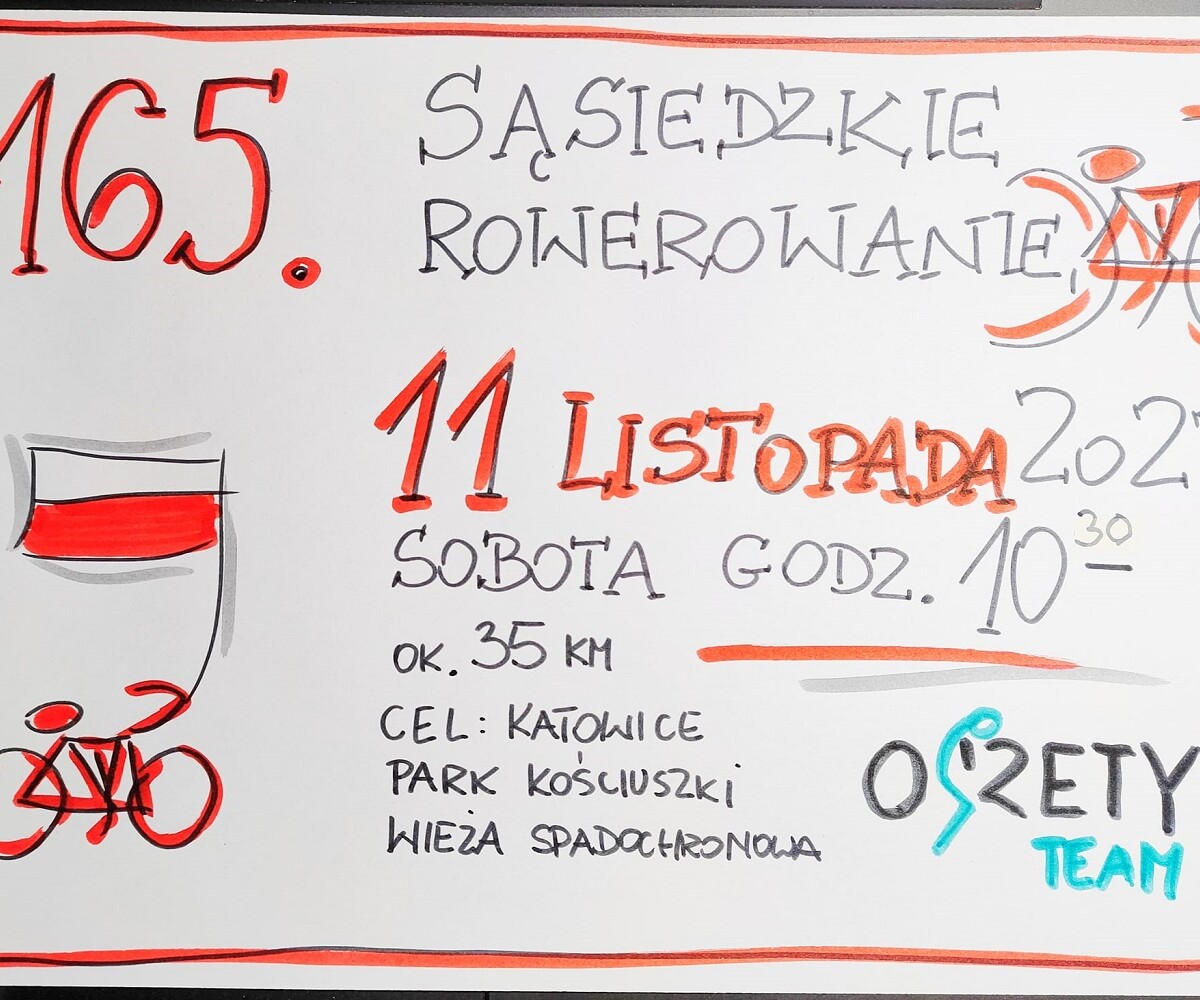 165.
SĄSIEDZKIE
ROWEROWANIE
11 LISTOPADA
SOBOTA GODZ. 10 30
OK. 35 KM
CEL: KATOWICE
PARK KOŚCIUSZKI
WIEŻA SPADOCHRONOWA
TEAM